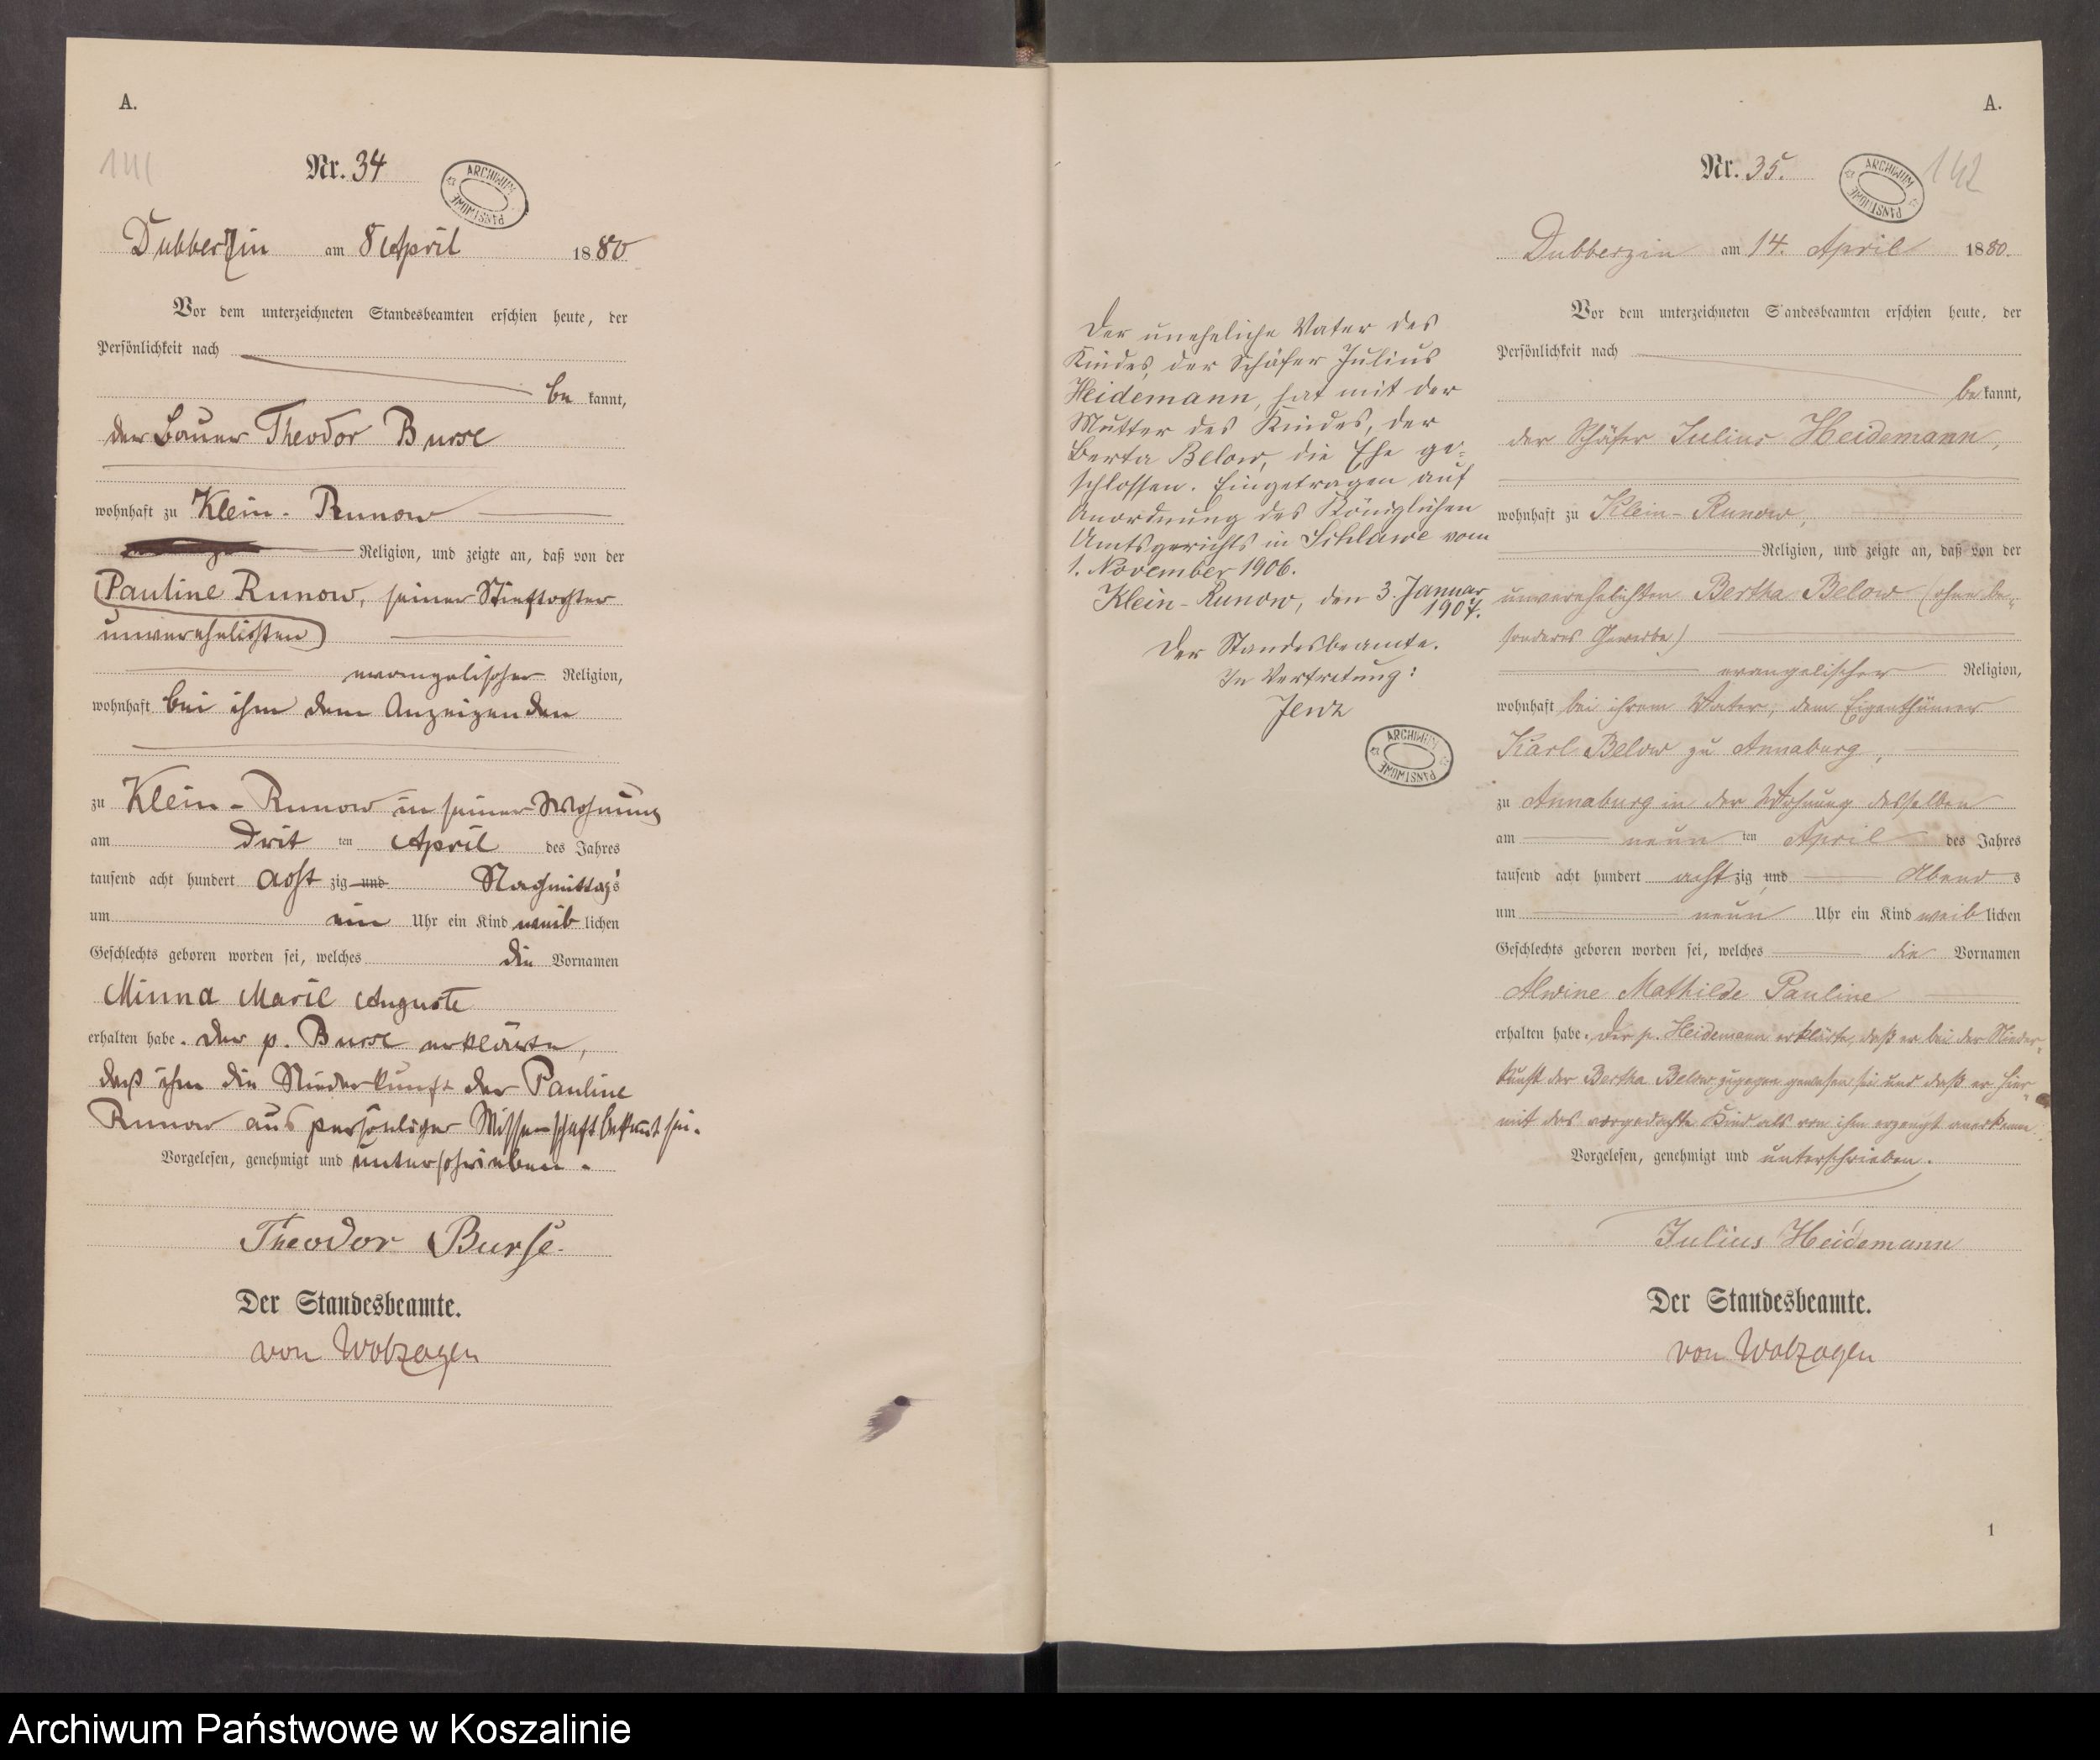 A.
141
Nr. 34
ARCHIWUM PAŃSTWOWE
Dubberzin am 8 April 1880
Vor dem unterzeichneten Standesbeamten erschien heute, der
Persönlichkeit nach
be kannt,
der Bauer Theodor Burse
wohnhaft zu Klein-Runow
Religion, und zeigte an, daß von der
Pauline Runow, seiner Stieftochter
unverehelichten
evangelischer Religion,
wohnhaft bei ihm dem Anzeigenden
zu Klein-Runow in seiner Wohnung
am Drit ten April des Jahres
tausend acht hundert acht zig und Nachmittags
um ein Uhr ein Kind weib lichen
Geschlechts geboren worden sei, welches die Vornamen
Minna Marie Auguste
erhalten habe. Der p. Burse erklärte,
daß ihm die Niederkunft der Pauline
Runow aus persönlicher Wissenschaft bekannt sei.
Vorgelesen, genehmigt und unterschrieben.
Theodor Burse.
Der Standesbeamte.
von Wolzogen
Der uneheliche Vater des
Kindes, der Schäfer Julius
Heidemann, hat mit der
Mutter des Kindes, der
Berta Below, die Ehe ge=
schlossen. Eingetragen auf
Anordnung des Königlichen
Amtsgerichts in Schlawe vom
1. November 1906.
Klein-Runow, den 3. Januar
1907.
Der Standesbeamte.
In Vertretung:
Jenz
ARCHIWUM PAŃSTWOWE
A.
142
Nr. 35.
ARCHIWUM PAŃSTWOWE
Dubberzin am 14. April 1880.
Vor dem unterzeichneten Standesbeamten erschien heute, der
Persönlichkeit nach
be kannt,
der Schäfer Julius Heidemann,
wohnhaft zu Klein-Runow,
Religion, und zeigte an, daß von der
unverehelichten Bertha Below (ohne be=
sonderes Gewerbe)
evangelischer Religion,
wohnhaft bei ihrem Vater, dem Eigenthümer
Karl Below zu Annaburg,
zu Annaburg in der Wohnung desselben
am neun ten April des Jahres
tausend acht hundert acht zig und Abend s
um neun Uhr ein Kind weib lichen
Geschlechts geboren worden sei, welches die Vornamen
Alwine Mathilde Pauline
erhalten habe. Der p. Heidemann erklärte, daß er bei der Nieder=
kunft der Bertha Below zugegen gewesen sei und daß er hier=
mit das vorgedachte Kind als von ihm erzeugt anerkenne.
Vorgelesen, genehmigt und unterschrieben.
Julius Heidemann
Der Standesbeamte.
von Wolzogen
1
Archiwum Państwowe w Koszalinie